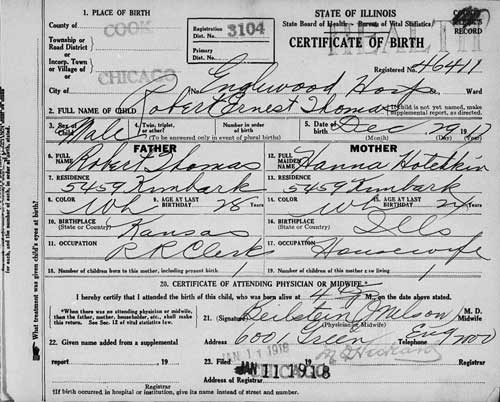 1. PLACE OF BIRTH
STATE OF ILLINOIS
State Board of Health — Bureau of Vital Statistics
County of COOK
Registration Dist. No. 3104
CERTIFICATE OF BIRTH
HEALTH
RECORD
Township or Road District or
Incorp. Town or Village of
or City of CHICAGO
Primary Dist. No.
Registered No. 46411
Englewood Hosp
2. FULL NAME OF CHILD Robert Ernest Thomas
If child is not yet named, make supplemental report, as directed.
3. Sex of Child Male
4. Twin, triplet, or other?
Number in order of birth
(To be answered only in event of plural births)
5. Date of birth Dec 29 1917
(Month) (Day) (Year)
FATHER
MOTHER
6. FULL NAME Robert Thomas
12. FULL MAIDEN NAME Hanna Hotchkin
7. RESIDENCE 5459 Kimbark
13. RESIDENCE 5459 Kimbark
8. COLOR Wh
9. AGE AT LAST BIRTHDAY 28 Years
14. COLOR Wh
15. AGE AT LAST BIRTHDAY Years
10. BIRTHPLACE (State or Country) Kansas
16. BIRTHPLACE (State or Country) Ills
11. OCCUPATION RR Clerk
17. OCCUPATION Housewife
18. Number of children born to this mother, including present birth 1
19. Number of children of this mother now living 1
20. CERTIFICATE OF ATTENDING PHYSICIAN OR MIDWIFE*
I hereby certify that I attended the birth of this child, who was born alive at M., on the date above stated.
*When there was no attending physician or midwife, then the father, mother, householder, etc., shall make this return. See Sec. 12 of vital statistics law.
21. (Signature) Nelson M. D.
(Physician or Midwife) Midwife
Address 600 Green Telephone
22. Given name added from a supplemental
report 19
Registrar
23. Filed JAN 11 1918 19
JAN 11 1918
CHICAGO
Address of Registrar
Registrar
†If birth occurred in hospital or institution, give its name instead of street and number.
What treatment was given child's eyes at birth?